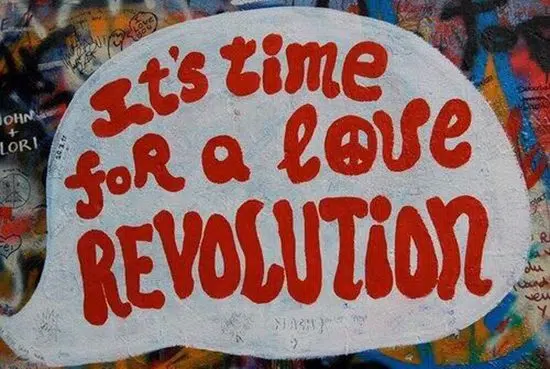 It's time
foR a love
REVOLUTiON
I
LOVE
YOU
JOHN
+
LORI